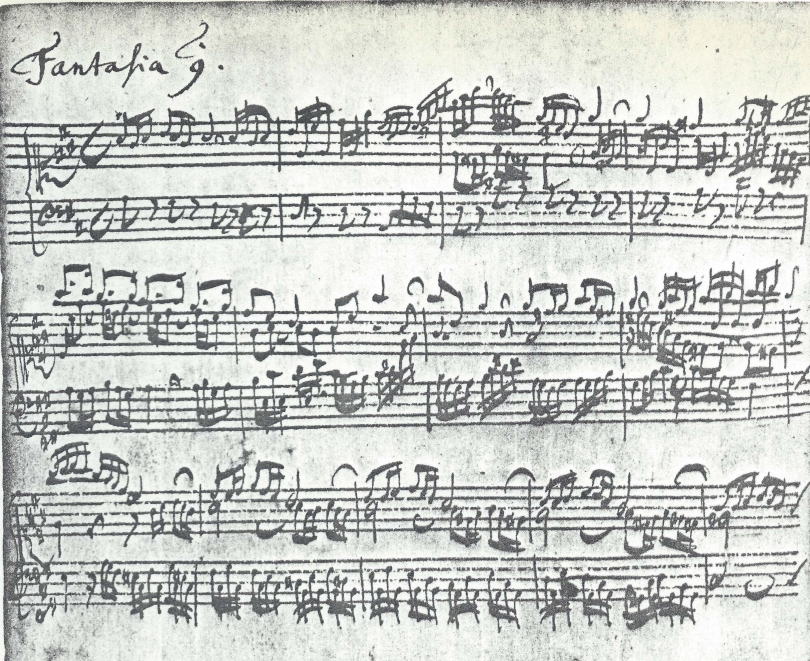 Fantasia 9.